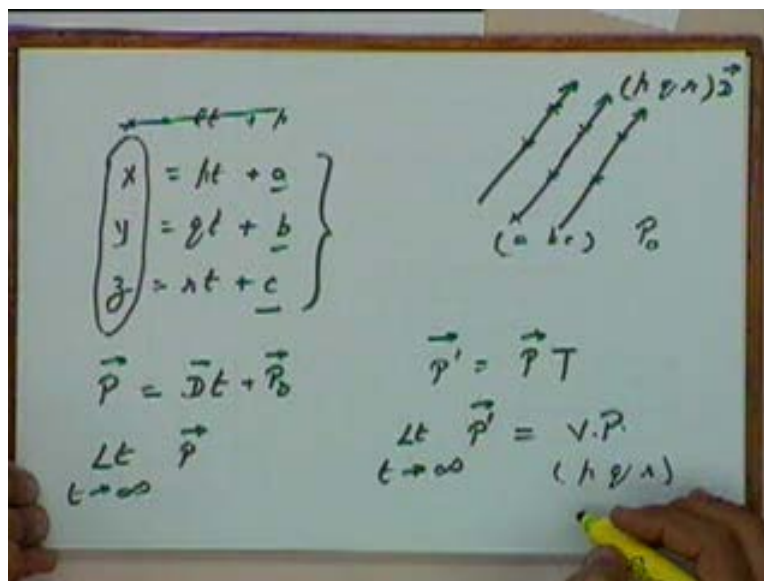 x = pt + a
y = qt + b
z = rt + c
P = Dt + P₀
Lt P
t → ∞
(p q r) D
(a b c) P₀
P' = P T
Lt P' = V.P.
t → ∞ (p q r)